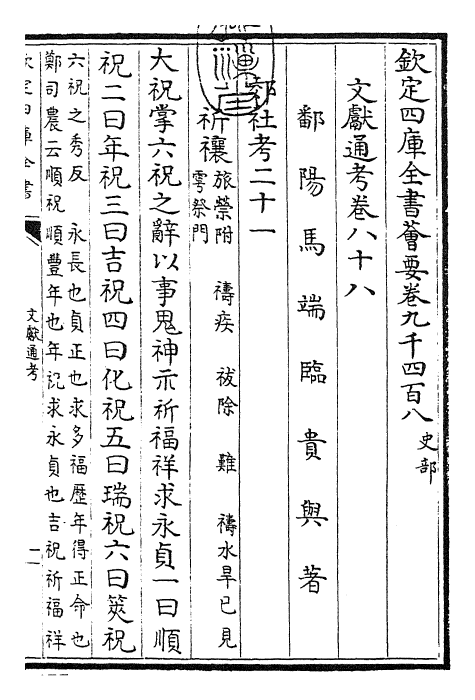 欽定四庫全書薈要卷九千四百八 史部
文獻通考卷八十八
鄱陽馬端臨貴與著
郊社考二十一
祈禳 旅禜附 禱疾 祓除 難 禱水旱已見
雩祭門
大祝掌六祝之辭以事鬼神示祈福祥求永貞一曰順
祝二曰年祝三曰吉祝四曰化祝五曰瑞祝六曰筴祝
六祝之秀反 永長也貞正也求多福歷年得正命也
鄭司農云順祝順豐年也年祝求永貞也吉祝祈福祥
文獻通考
一